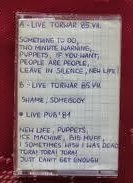 A - LIVE TORWAR '85. VII.
SOMETHING TO DO,
TWO MINUTE WARNING,
PUPPETS, IF YOU WANT,
PEOPLE ARE PEOPLE,
LEAVE IN SILENCE, NEW LIFE
B - LIVE TORWAR '85. VII.
SHAME, SOMEBODY
LIVE PUB' 81
NEW LIFE, PUPPETS,
ICE MACHINE, BIG MUFF,
I SOMETIMES WISH I WAS DEAD
TORA! TORA! TORA!
JUST CAN'T GET ENOUGH